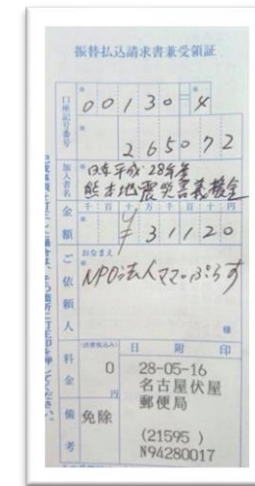 振替払込請求書兼受領証
口座記号番号
00130-4
265072
加入者名
日赤平成28年
熊本地震災害義援金
金額
千 百 十 万 千 百 十 円
¥31120
ご依頼人
おなまえ
NPO法人ママ・ぷらす
様
料金
(消費税込み)
0
円
日附印
28-05-16
名古屋伏屋
郵便局
(21595 )
N94280017
備考
免除